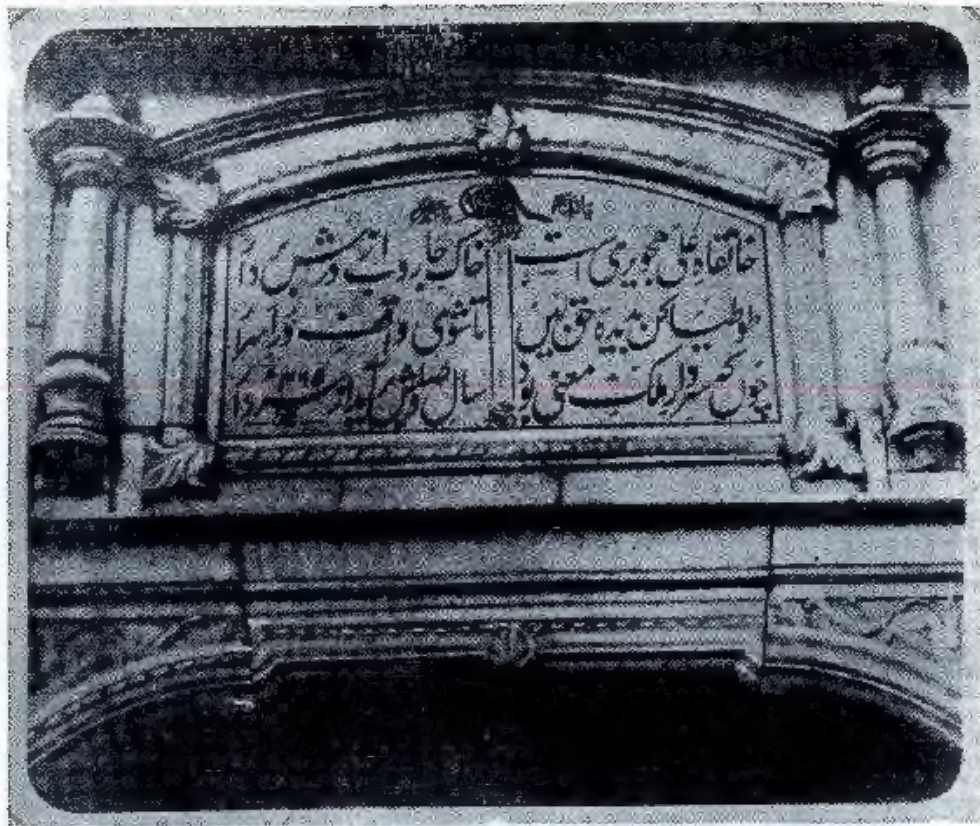 خانقاہ علی ہجویری است خاک جاروب از درش بردار
طوطیا کن بدیدۂ حق بیں تا شوی واقف در اسرار
چوں کہ سردار ملک معنی بود سال وصلش برآید از سردار